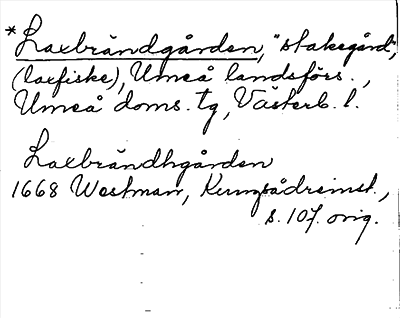 *Laxbrändgården, "stakegård",
(laxfiske), Umeå landsförs.,
Umeå doms. tg, Västerb. l.
Laxbrändhgården
1668 Westman, Kungsådreinst.,
s. 107. orig.